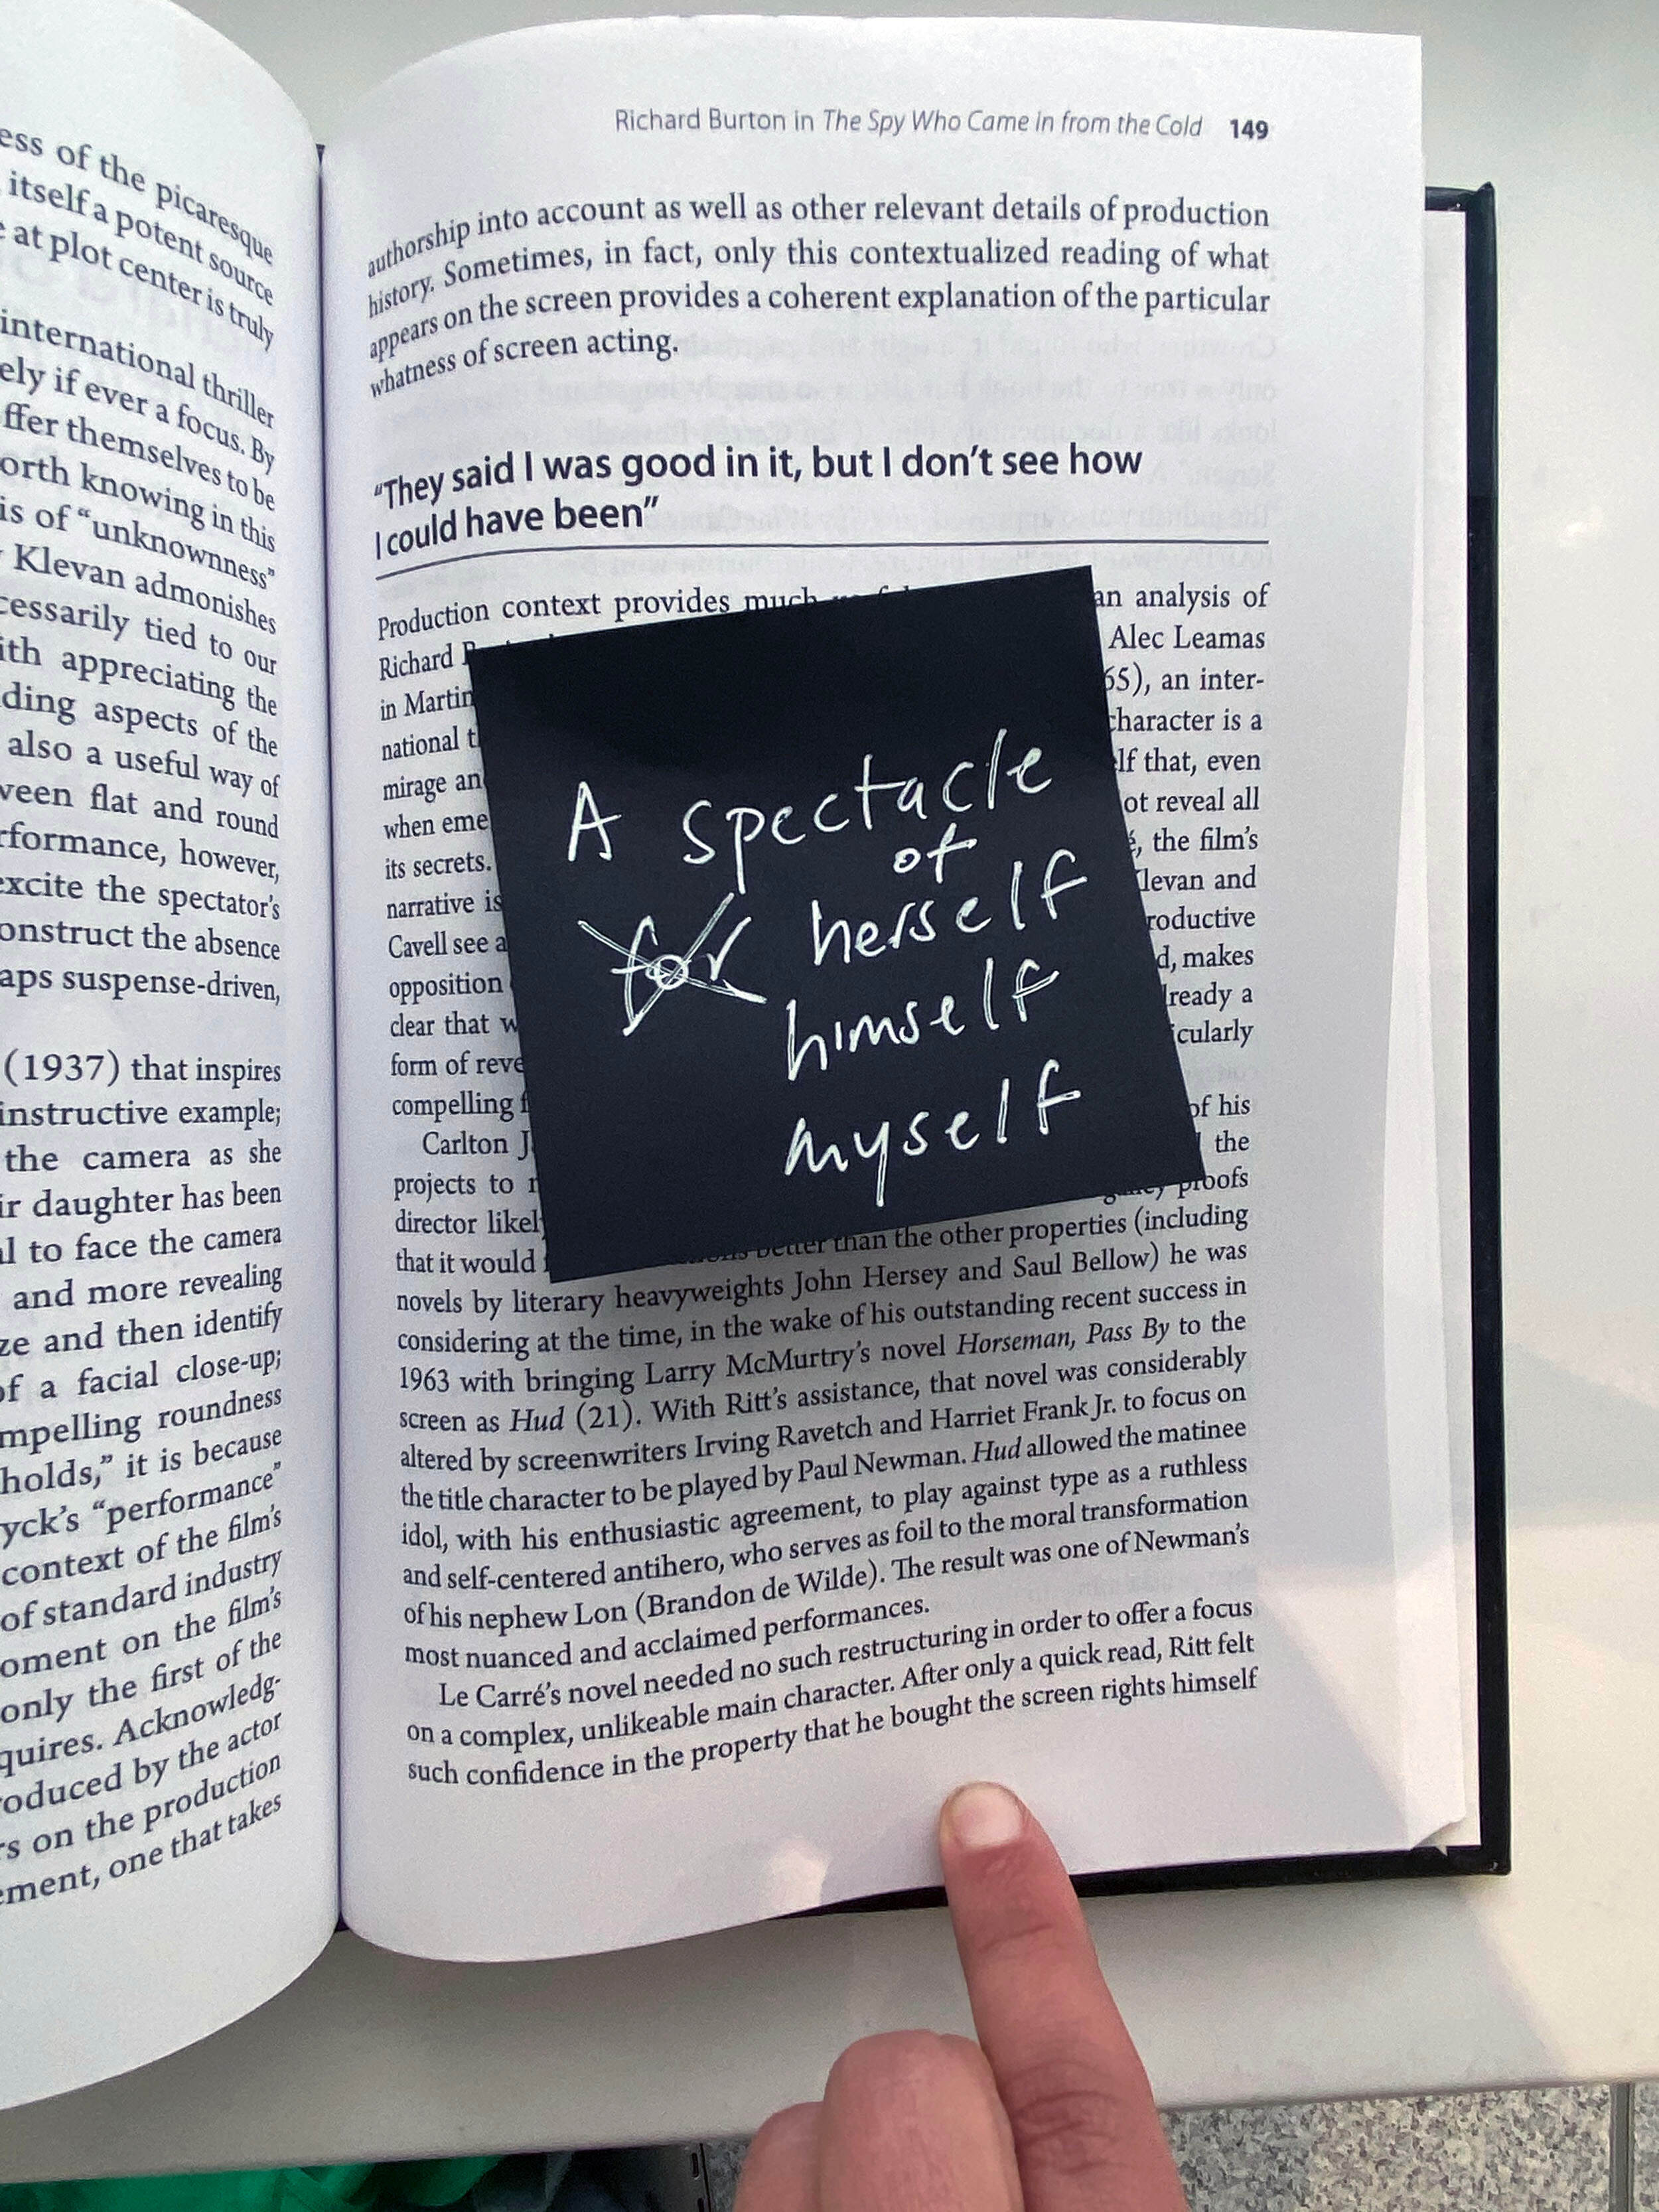 ess of the picaresque
itself a potent source
at plot center is truly
international thriller
ely if ever a focus. By
ffer themselves to be
orth knowing in this
is of “unknownness”
Klevan admonishes
cessarily tied to our
ith appreciating the
ding aspects of the
also a useful way of
ween flat and round
rformance, however,
excite the spectator’s
onstruct the absence
aps suspense-driven,
(1937) that inspires
instructive example;
the camera as she
ir daughter has been
al to face the camera
and more revealing
ze and then identify
of a facial close-up;
mpelling roundness
holds,” it is because
yck’s “performance”
context of the film’s
of standard industry
oment on the film’s
only the first of the
quires. Acknowledg-
roduced by the actor
rs on the production
ement, one that takes
Richard Burton in The Spy Who Came in from the Cold 149
authorship into account as well as other relevant details of production
history. Sometimes, in fact, only this contextualized reading of what
appears on the screen provides a coherent explanation of the particular
whatness of screen acting.
“They said I was good in it, but I don’t see how
I could have been”
Production context provides much an analysis of
Richard Alec Leamas
in Martin 65), an inter-
national t character is a
mirage an elf that, even
when eme ot reveal all
its secrets. é, the film’s
narrative is Klevan and
Cavell see a roductive
opposition d, makes
clear that w lready a
form of reve icularly
compelling f
Carlton J of his
projects to r the
director likel proofs
that it would better than the other properties (including
novels by literary heavyweights John Hersey and Saul Bellow) he was
considering at the time, in the wake of his outstanding recent success in
1963 with bringing Larry McMurtry’s novel Horseman, Pass By to the
screen as Hud (21). With Ritt’s assistance, that novel was considerably
altered by screenwriters Irving Ravetch and Harriet Frank Jr. to focus on
the title character to be played by Paul Newman. Hud allowed the matinee
idol, with his enthusiastic agreement, to play against type as a ruthless
and self-centered antihero, who serves as foil to the moral transformation
of his nephew Lon (Brandon de Wilde). The result was one of Newman’s
most nuanced and acclaimed performances.
Le Carré’s novel needed no such restructuring in order to offer a focus
on a complex, unlikeable main character. After only a quick read, Ritt felt
such confidence in the property that he bought the screen rights himself
A spectacle
of
for herself
himself
myself